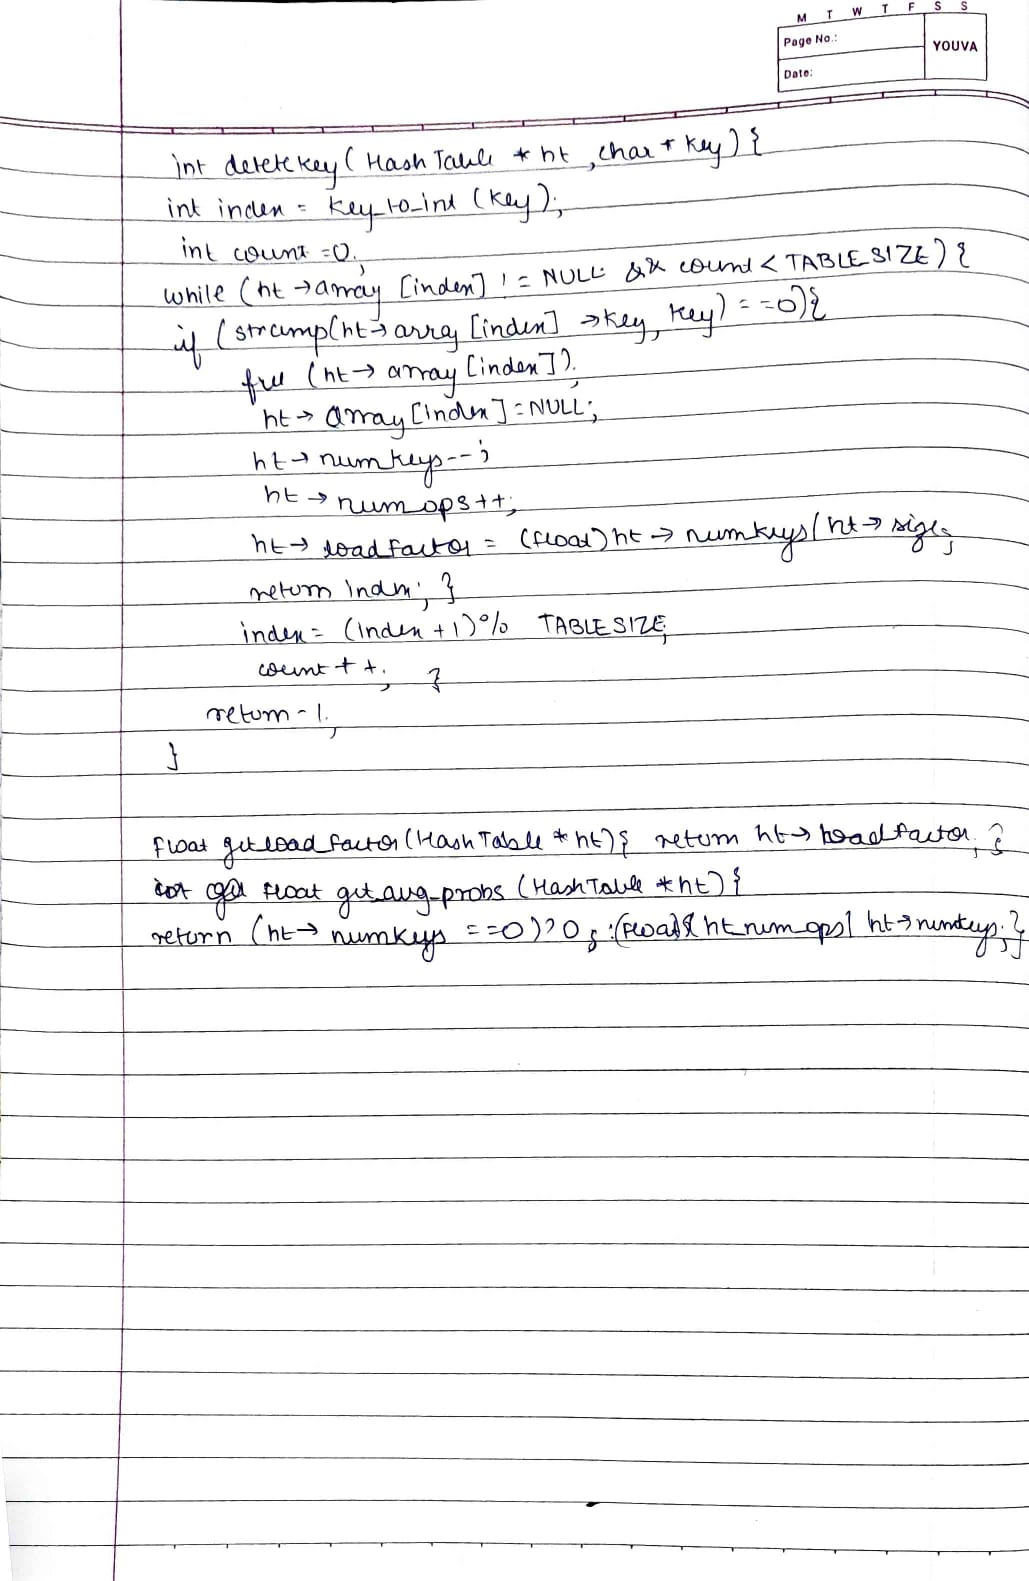 M T W T F S S
Page No.:
YOUVA
Date:
int deletekey ( Hash Table * ht , char * key ) {
int index = key_to_int (key);
int count = 0;
while (ht → array [index] != NULL && count < TABLE SIZE) {
if (strcmp(ht → array [index] → key, key) == 0){
free (ht → array [index]);
ht → array [index] = NULL;
ht → numkeys--;
ht → numops++;
ht → loadfactor = (float) ht → numkeys / ht → size;
return index; }
index = (index + 1) % TABLE SIZE;
count ++; }
return -1;
}
float getload factor (Hash Table * ht) { return ht → loadfactor; }
float get_avg_probs (Hash Table * ht) {
return (ht → numkeys == 0) ? 0 : (float) ht numops / ht → numkeys; }